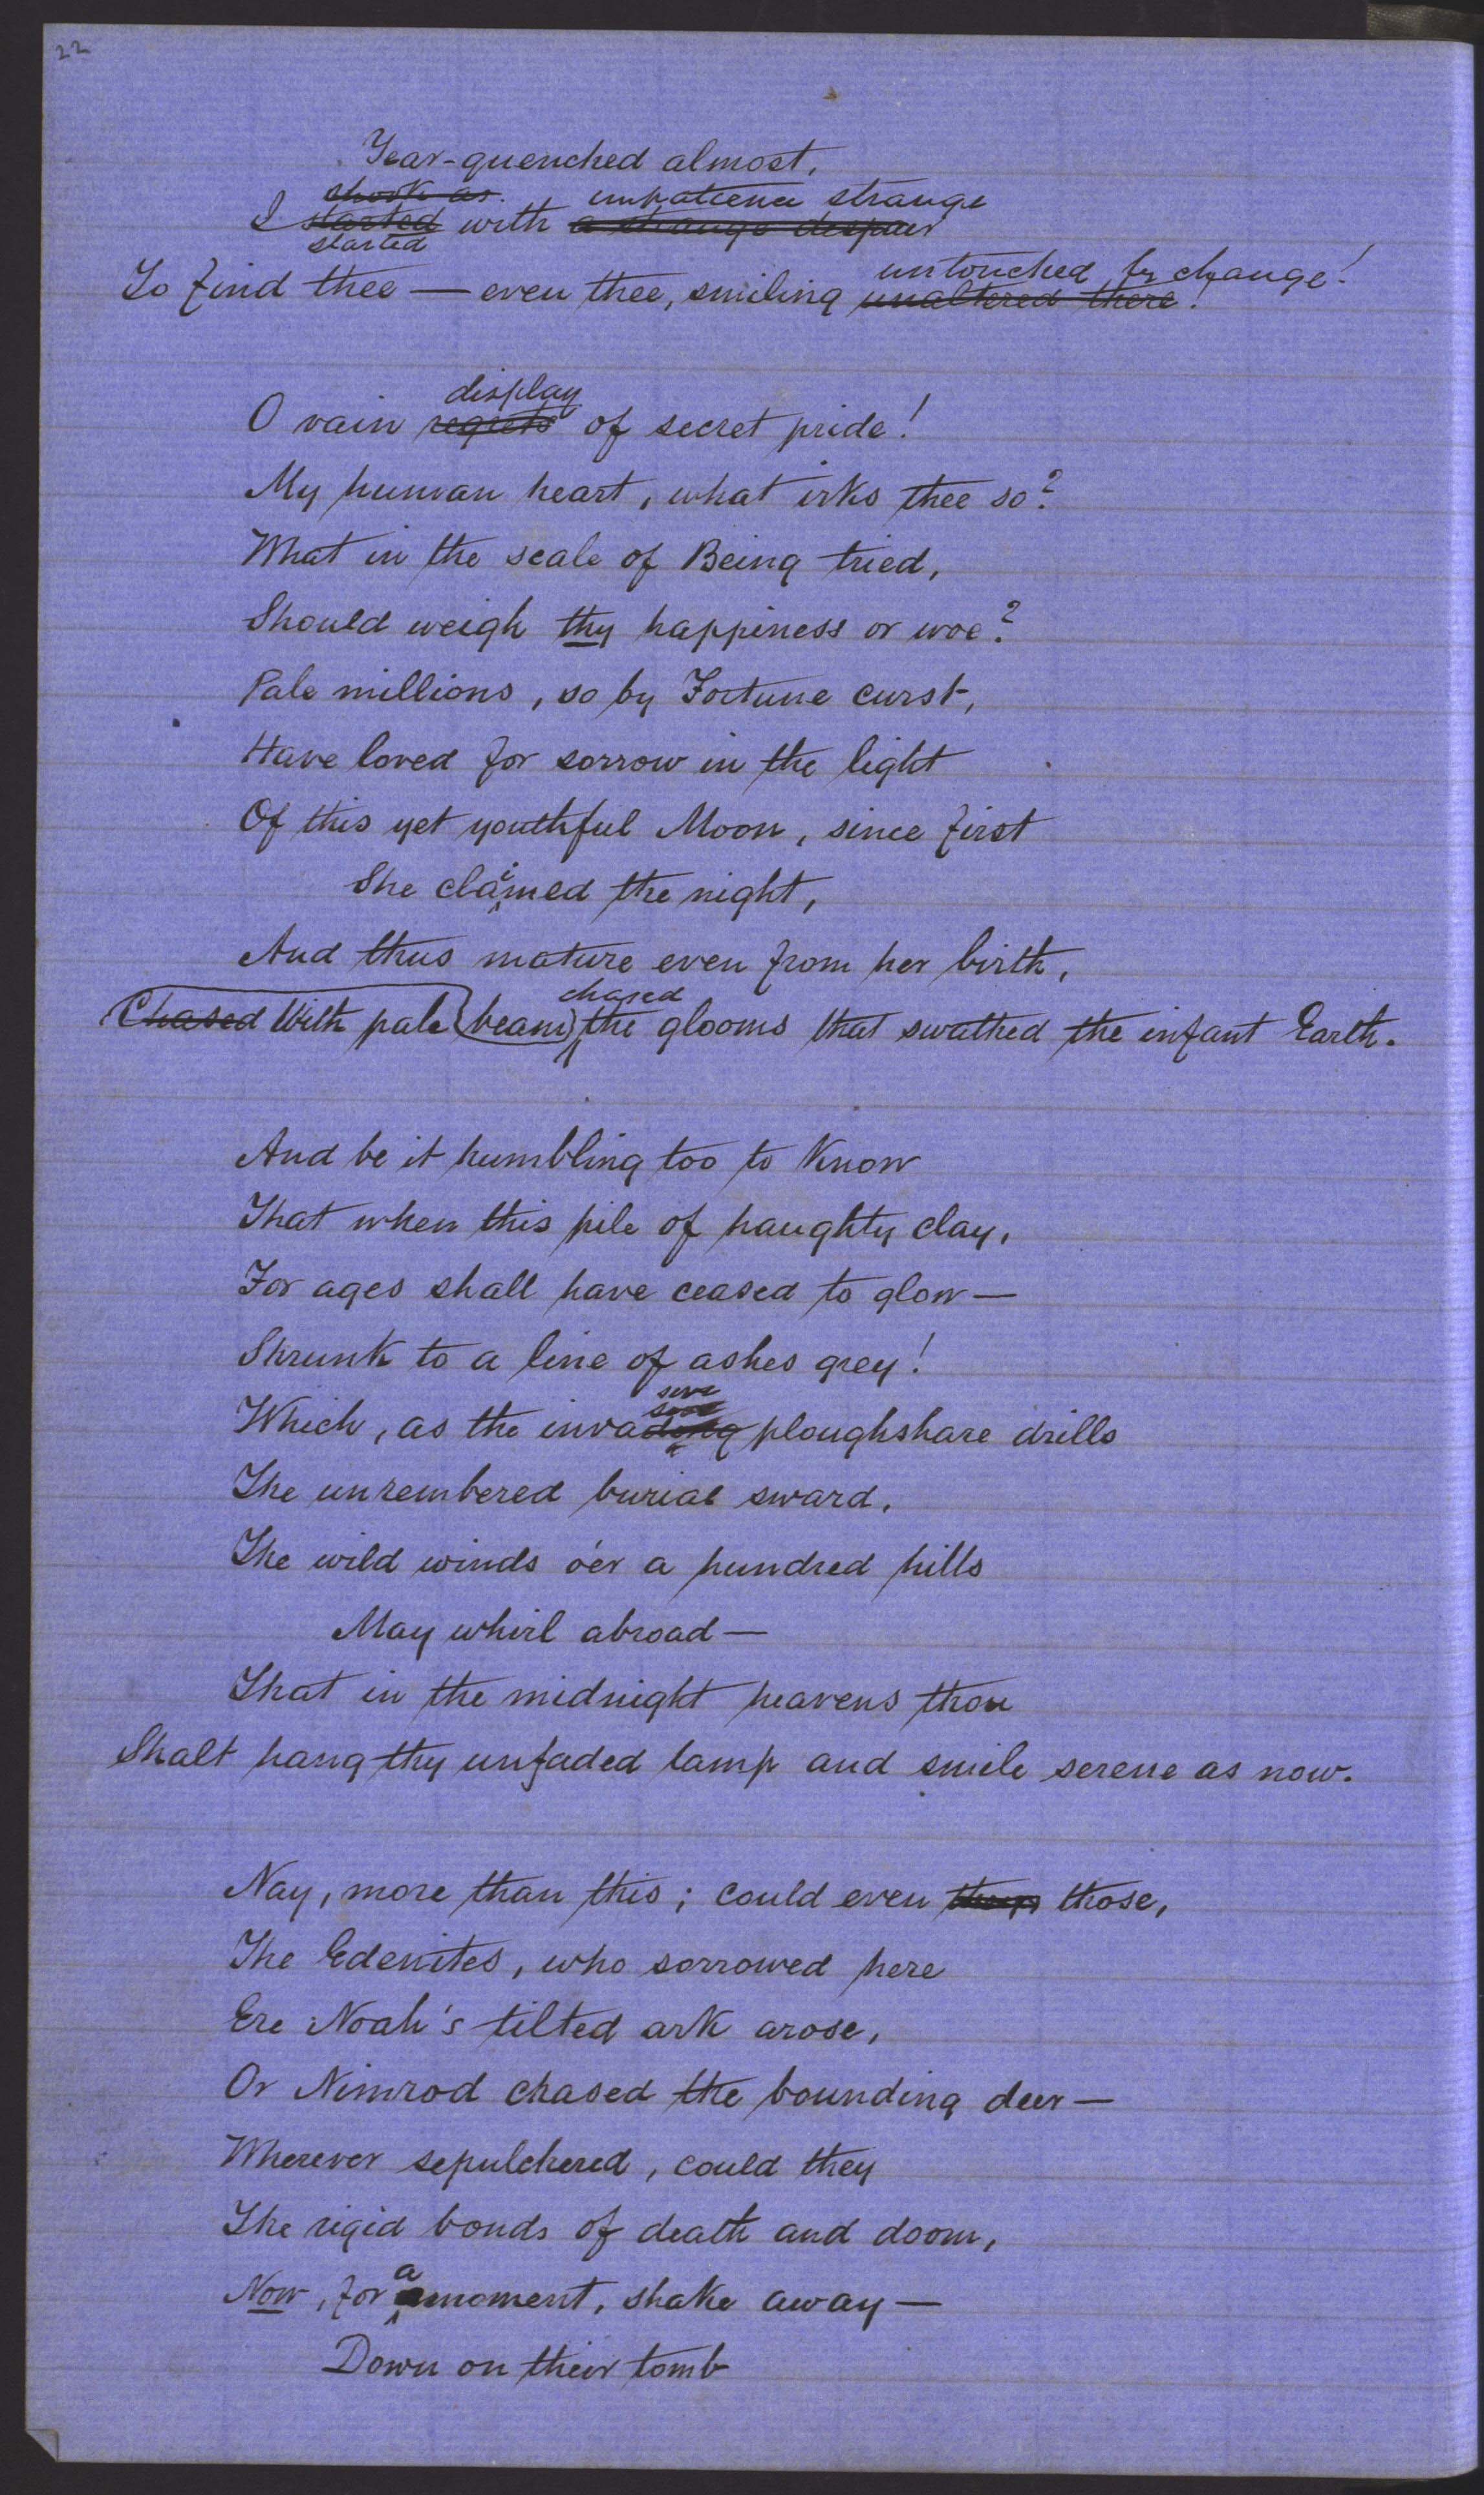 22
Tear-quenched almost,
shook as impatience strange
I started with a strange despair
started
untouched by change!
To find thee — even thee, smiling unaltered there!
display
O vain regrets of secret pride!
My human heart, what irks thee so?
What in the scale of Being tried,
Should weigh thy happiness or woe?
Pale millions, so by Fortune curst,
Have loved for sorrow in the light
Of this yet youthful Moon, since first
She claimed the night,
And thus mature even from her birth,
chased
Chased With pale beam the glooms that swathed the infant Earth.
And be it humbling too to know
That when this pile of haughty clay,
For ages shall have ceased to glow —
Shrunk to a line of ashes grey!
sive
Which, as the invading ploughshare drills
The unrembered burial sward,
The wild winds o'er a hundred hills
May whirl abroad —
That in the midnight heavens thou
Shalt hang thy unfaded lamp and smile serene as now.
Nay, more than this; could even those,
The Edenites, who sorrowed here
Ere Noah's tilted ark arose,
Or Nimrod chased the bounding deer —
Wherever sepulchered, could they
The rigid bonds of death and doom,
a
Now, for moment, shake away —
Down on their tomb